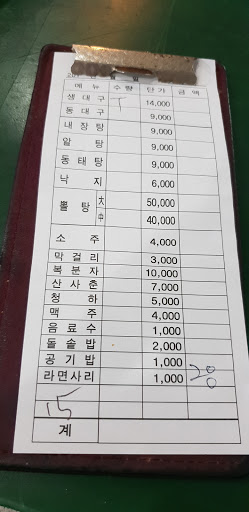 메 뉴 수 량 단 가 금 액
생 대 구 T 14,000
동 대 구 9,000
내 장 탕 9,000
알 탕 9,000
동 태 탕 9,000
낙 지 6,000
뽈 탕 大 50,000
中 40,000
소 주 4,000
막 걸 리 3,000
복 분 자 10,000
산 사 춘 7,000
청 하 5,000
맥 주 4,000
음 료 수 1,000
돌 솥 밥 2,000
공 기 밥 1,000
라면사리 1,000 20
15
계